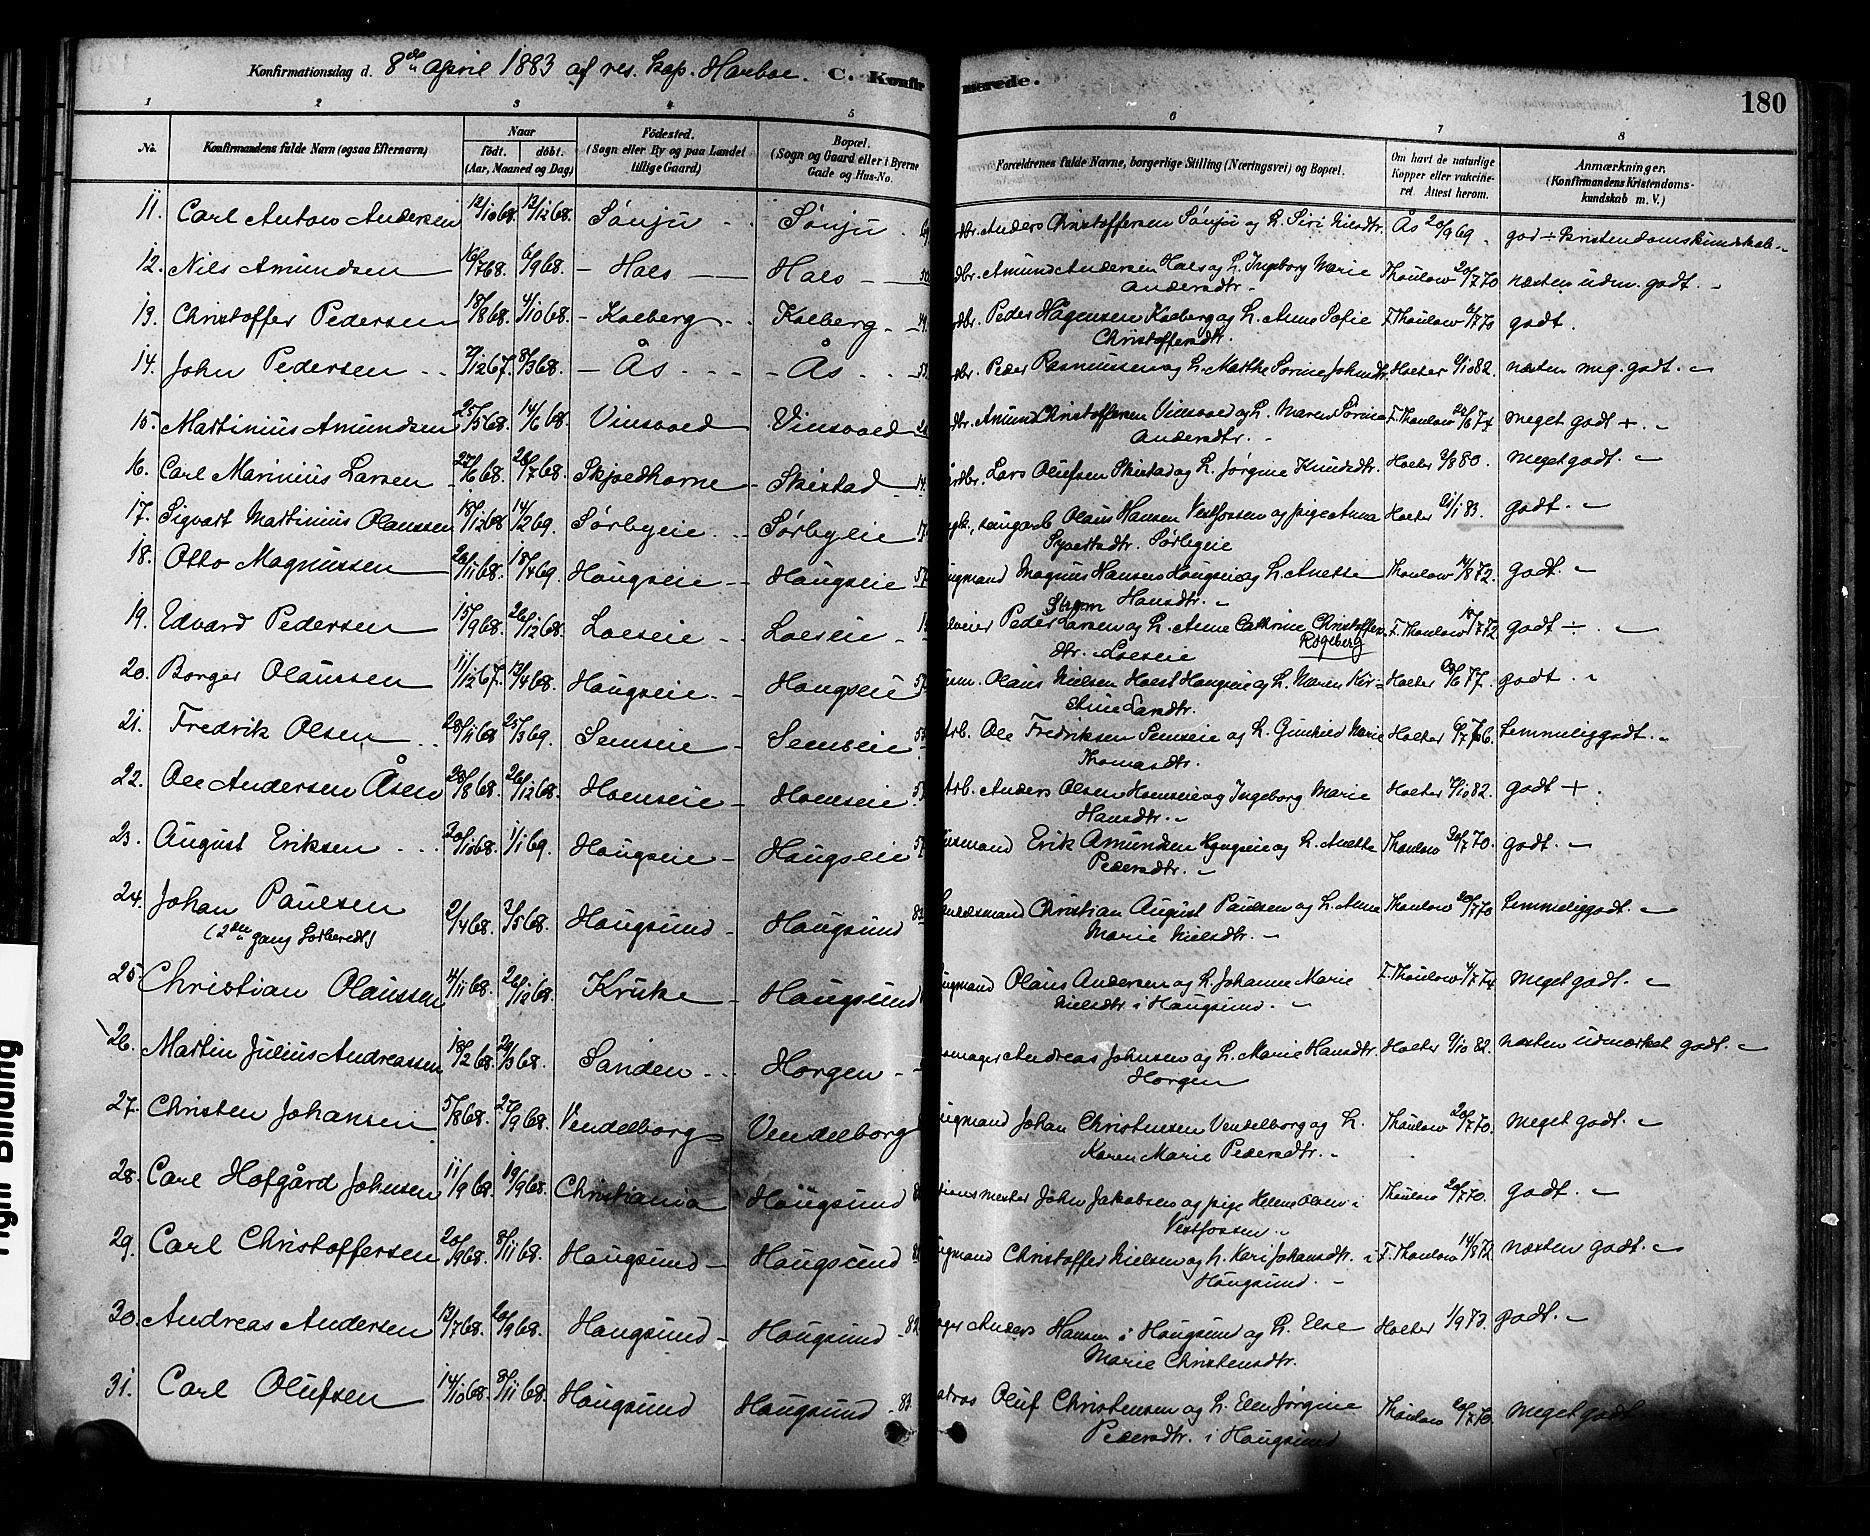 Konfirmationsdag d. 8de April 1883 af res. kap. Harboe. C. Konfirmerede.
180
1 2 3 4 5 6 7 8
No. Konfirmandens fulde Navn (ogsaa Efternavn) Naar født. døbt. (Aar, Maaned og Dag) Fødested. (Sogn eller By og paa Landet tillige Gaard) Bopæl. (Sogn og Gaard eller i Byerne Gade og Hus-No. Forældrenes fulde Navne, borgerlige Stilling (Næringsvei) og Bopæl. Om havt de naturlige Kopper eller vakcineret. Attest herom. Anmærkninger. (Konfirmandens Kristendomskundskab m. V.)
11. Carl Anton Andersen 12/10 68. 12/12 68. Sønju Sønju Anders Christoffersen Sønju og h. Siri Nilsdtr. Ås 20/9 69. god ÷ kristendomskundskab
12. Nils Amundsen 16/7 68. 6/9 68. Hals Hals Amund Andersen Hals og h. Ingeborg Marie Thaulow 20/7 70 næsten udm. godt.
Andersdtr.
13. Christoffer Pedersen 18/8 68. 4/10 68. Kolberg Kolberg Peder Hagensen Kolberg og h. Anne Sofie F. Thaulow godt.
Christoffersdtr.
14. John Pedersen 7/12 67. 8/3 68. Ås Ås Peder Rasmussen og h. Marthe Sørine Johnsdtr. Holter 9/10 82. næsten meg. godt.
15. Martinius Amundsen 25/5 68. 14/6 68. Vinsvold Vinsvold Amund Christoffersen Vinsvold og h. Maren Sørine F. Thaulow meget godt +.
Andersdtr.
16. Carl Marinius Larsen 27/6 68. 26/7 68. Skjødhorne Skistad Lars Olufsen Skistad og h. Jørgine Knudsdtr. Holter 2/8 80. meget godt.
17. Sigvart Martinius Olaussen 18/12 68 14/2 69. Sørbyeie Sørbyeie Olaus Hansen Vestfossen og pige Anna Holter godt.
Syvertsdtr. Sørbyeie
18. Otto Magnussen 18/4 69. Haugseie Haugseie 57 Magnus Hansen Haugseie og h. Anette Thaulow 14/8 72. godt.
Hansdtr.
19. Edvard Pedersen 15/9 68. 26/12 68. Loeseie Loeseie Peder Larsen og h. Anne Cathrine Christoffers F. Thaulow 18/7 72 godt ÷.
Strøm
dtr. Loeseie
20. Borger Olaussen 11/12 67. 13/4 68. Haugseie Haugseie 57 Olaus Nielsen Holst Haugseie og h. Maren Kir- Holter godt.
stine Larsdtr.
21. Fredrik Olsen 25/3 69. Semseie Semseie Arb. Ole Fredriksen Semseie og h. Gunhild Marie Holter temmelig godt.
Thomasdtr.
22. Ole Andersen Åsen 28/8 68. 26/12 68. Hoenseie Hoenseie Arb. Anders Olsen Hoenseie og Ingeborg Marie Holter 9/10 82. godt +.
Hansdtr.
23. August Eriksen 30/10 68. 1/1 69. Haugseie Haugseie 57 Husmand Erik Amundsen Haugseie og h. Anette Thaulow 30/7 70. godt.
Pedersdtr.
24. Johan Paulsen 2/4 68. 3/5 68. Haugsund Haugsund Christian August Paulsen og h. Anne Thaulow 20/7 70 temmelig godt.
(2den gang forberedt) Marie Nielsdtr.
25. Christian Olaussen 4/11 68. 26/12 68. Kruke Haugsund Olaus Andersen og h. Johanne Marie F. Thaulow 4/7 74. meget godt.
Nielsdtr. i Haugsund.
26. Martin Julius Andreassen 18/2 68. 29/3 68. Sanden Horgen Andreas Johnsen og h. Marie Hansdtr. Holter 9/10 82. næsten udmærket godt.
Horgen
27. Christen Johansen 5/8 68. 27/9 68. Vendelborg Vendelborg Johan Christensen Vendelborg og h. Thaulow 20/7 70. meget godt.
Karen Marie Pedersdtr.
28. Carl Hofgård Johnsen 11/9 68. 19/9 68. Christiania Haugsund John Jakobsen og pige Helene Olsen i Thaulow 20/7 70. godt.
Vestfossen
29. Carl Christoffersen 20/9 68. 8/11 68. Haugsund Haugsund Christoffer Nielsen og h. Kari Johansdtr. i F. Thaulow 14/8 72. næsten godt.
Haugsund.
30. Andreas Andersen 12/7 68. 20/9 68. Haugsund Haugsund 82 Anders Hansen i Haugsund og h. Else Holter godt.
Marie Christensdtr.
31. Carl Olufsen 14/10 68. 8/11 68. Haugsund Haugsund 83. Oluf Christensen og h. Elen Jørgine Thaulow 20/7 70. meget godt
Pedersdtr. i Haugsund